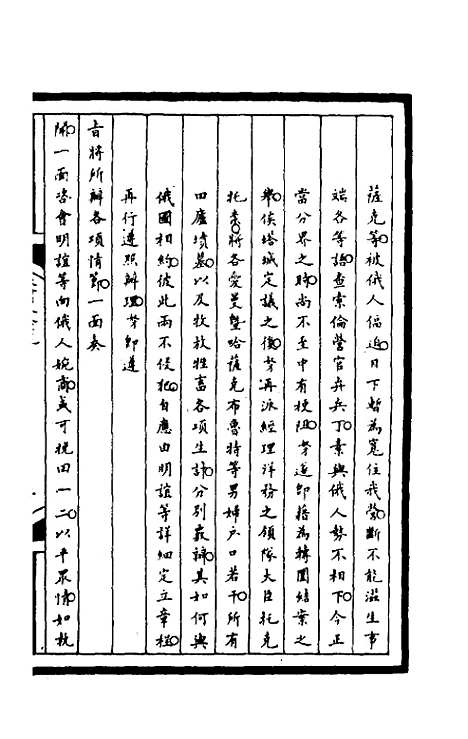 薩克等被俄人偪近目下暫為寬住我營斷不能滋生事
端各等語查索倫營官弁兵丁素與俄人勢不相下今正
當分界之時尚不至中有梗阻茅遵即藉為轉圜結案之
舉俟塔城定議之後茅再派經理洋務之領隊大臣托克
托柰將各愛曼暨哈薩克布魯特等男婦戶口若干所有
田廬墳墓以及牧放牲畜各項生計分別裁辦其如何與
俄國相約彼此兩不侵犯自應由明誼等詳細定立章程
再行遵照辦理茅即遵
旨將所辦各項情節一面奏
聞一面咨會明誼等向俄人婉商或可挽回一二以平眾情如執